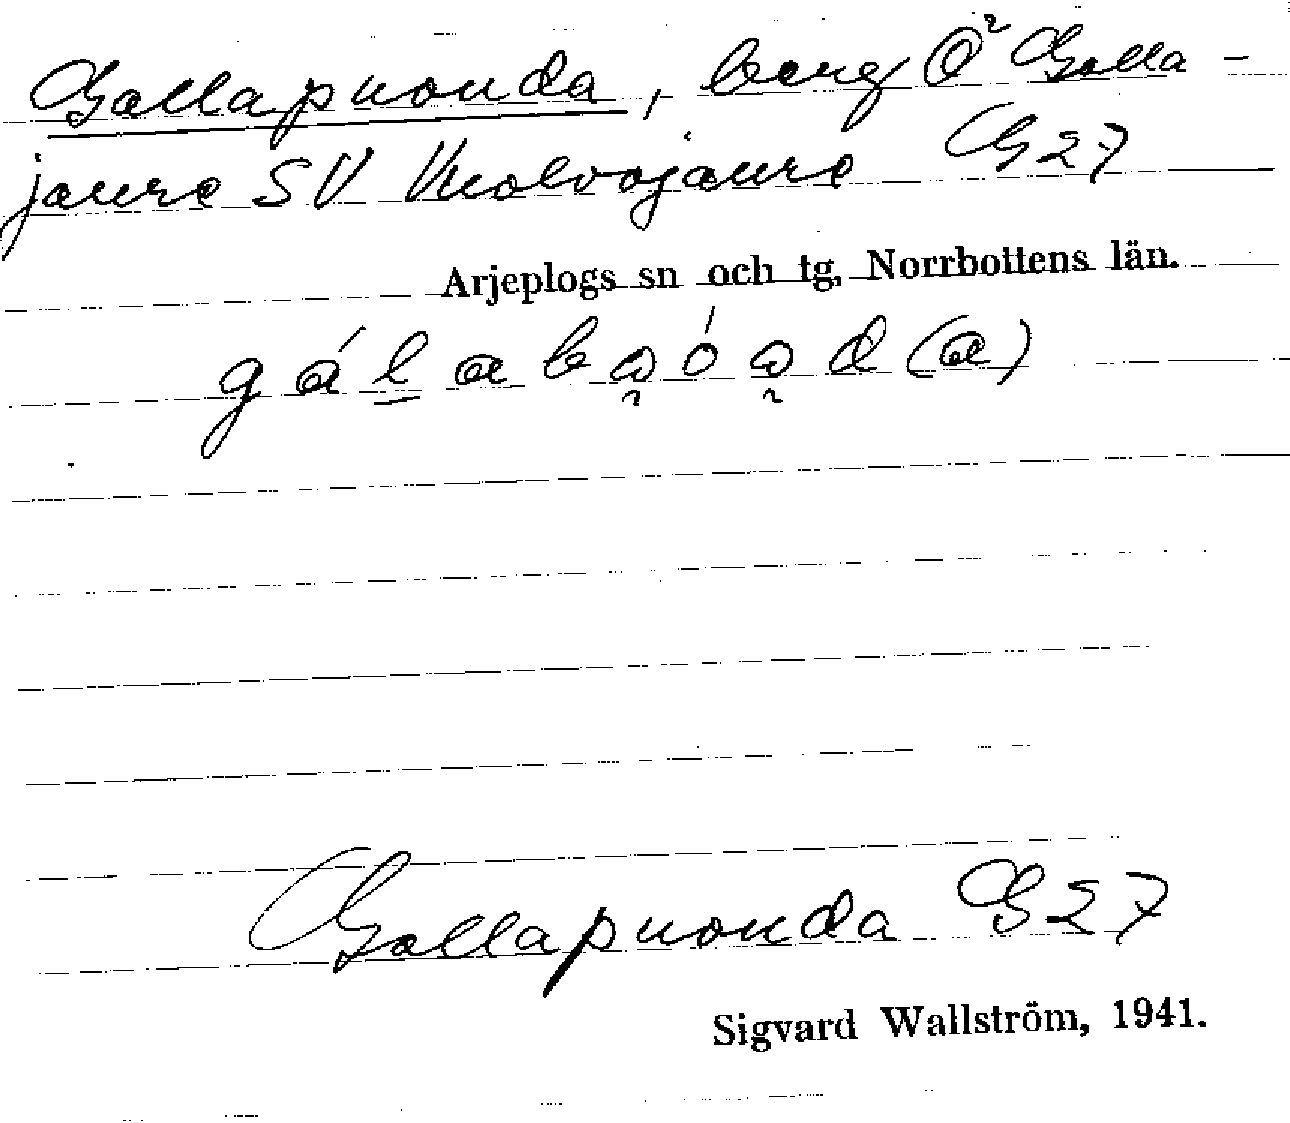 Gallapuouda, berg O² Galla-
jaure SV Vuolvojaure G27
Arjeplogs sn och tg, Norrbottens län.
Gallapuouda G27
Sigvard Wallström, 1941.